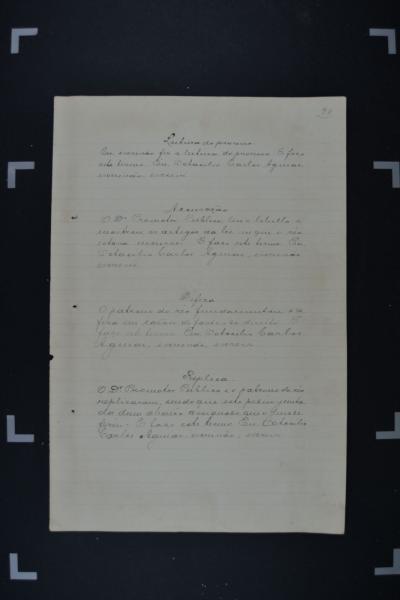 Leitura do processo
Eu, escrivão fiz a leitura do processo. E faço
este termo. Eu, Octacilio Carlos Aguiar,
escrivão, escrevi
Accusação
O Dr. Promotor Publico leu o libello e
mostrou os artigos da lei em que o réo
estava incurso. E faço este termo. Eu,
Octacilio Carlos Aguiar, escrivão
escrevi.
Defeza
O patrono do réo fundamentou a de
feza em razões de facto e de direito. E
faço este termo. Eu, Octacilio Carlos
Aguiar, escrivão, escrevi.
Replica
O Dr. Promotor Publico e o patrono do réo
replicaram, sendo que este pediu
E faço este termo. Eu Octacilio
Carlos Aguiar, escrivão, escrevi.